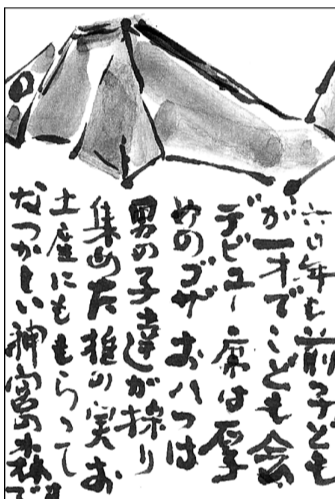 六〇年も前子ども
が一才でこども会
デビュー席は厚
めのゴザおハつは
男の子達が採り
集めた椎の実お
土産にももらって
なつかしい神宮の森で